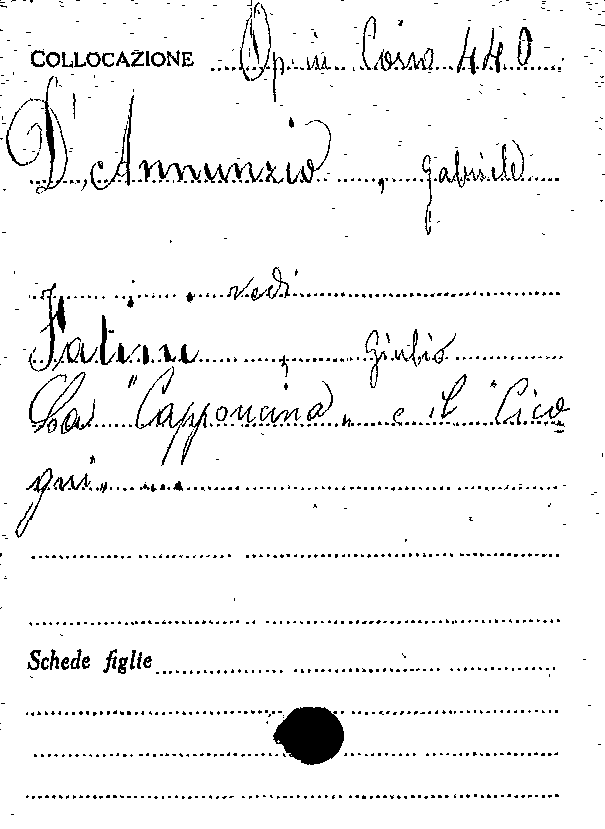 COLLOCAZIONE Op. in Corso 440
D'Annunzio, Gabriele
vedi
Fatini, Giulio
La "Capponcina„ e il "Cico
gni„ ...
Schede figlie